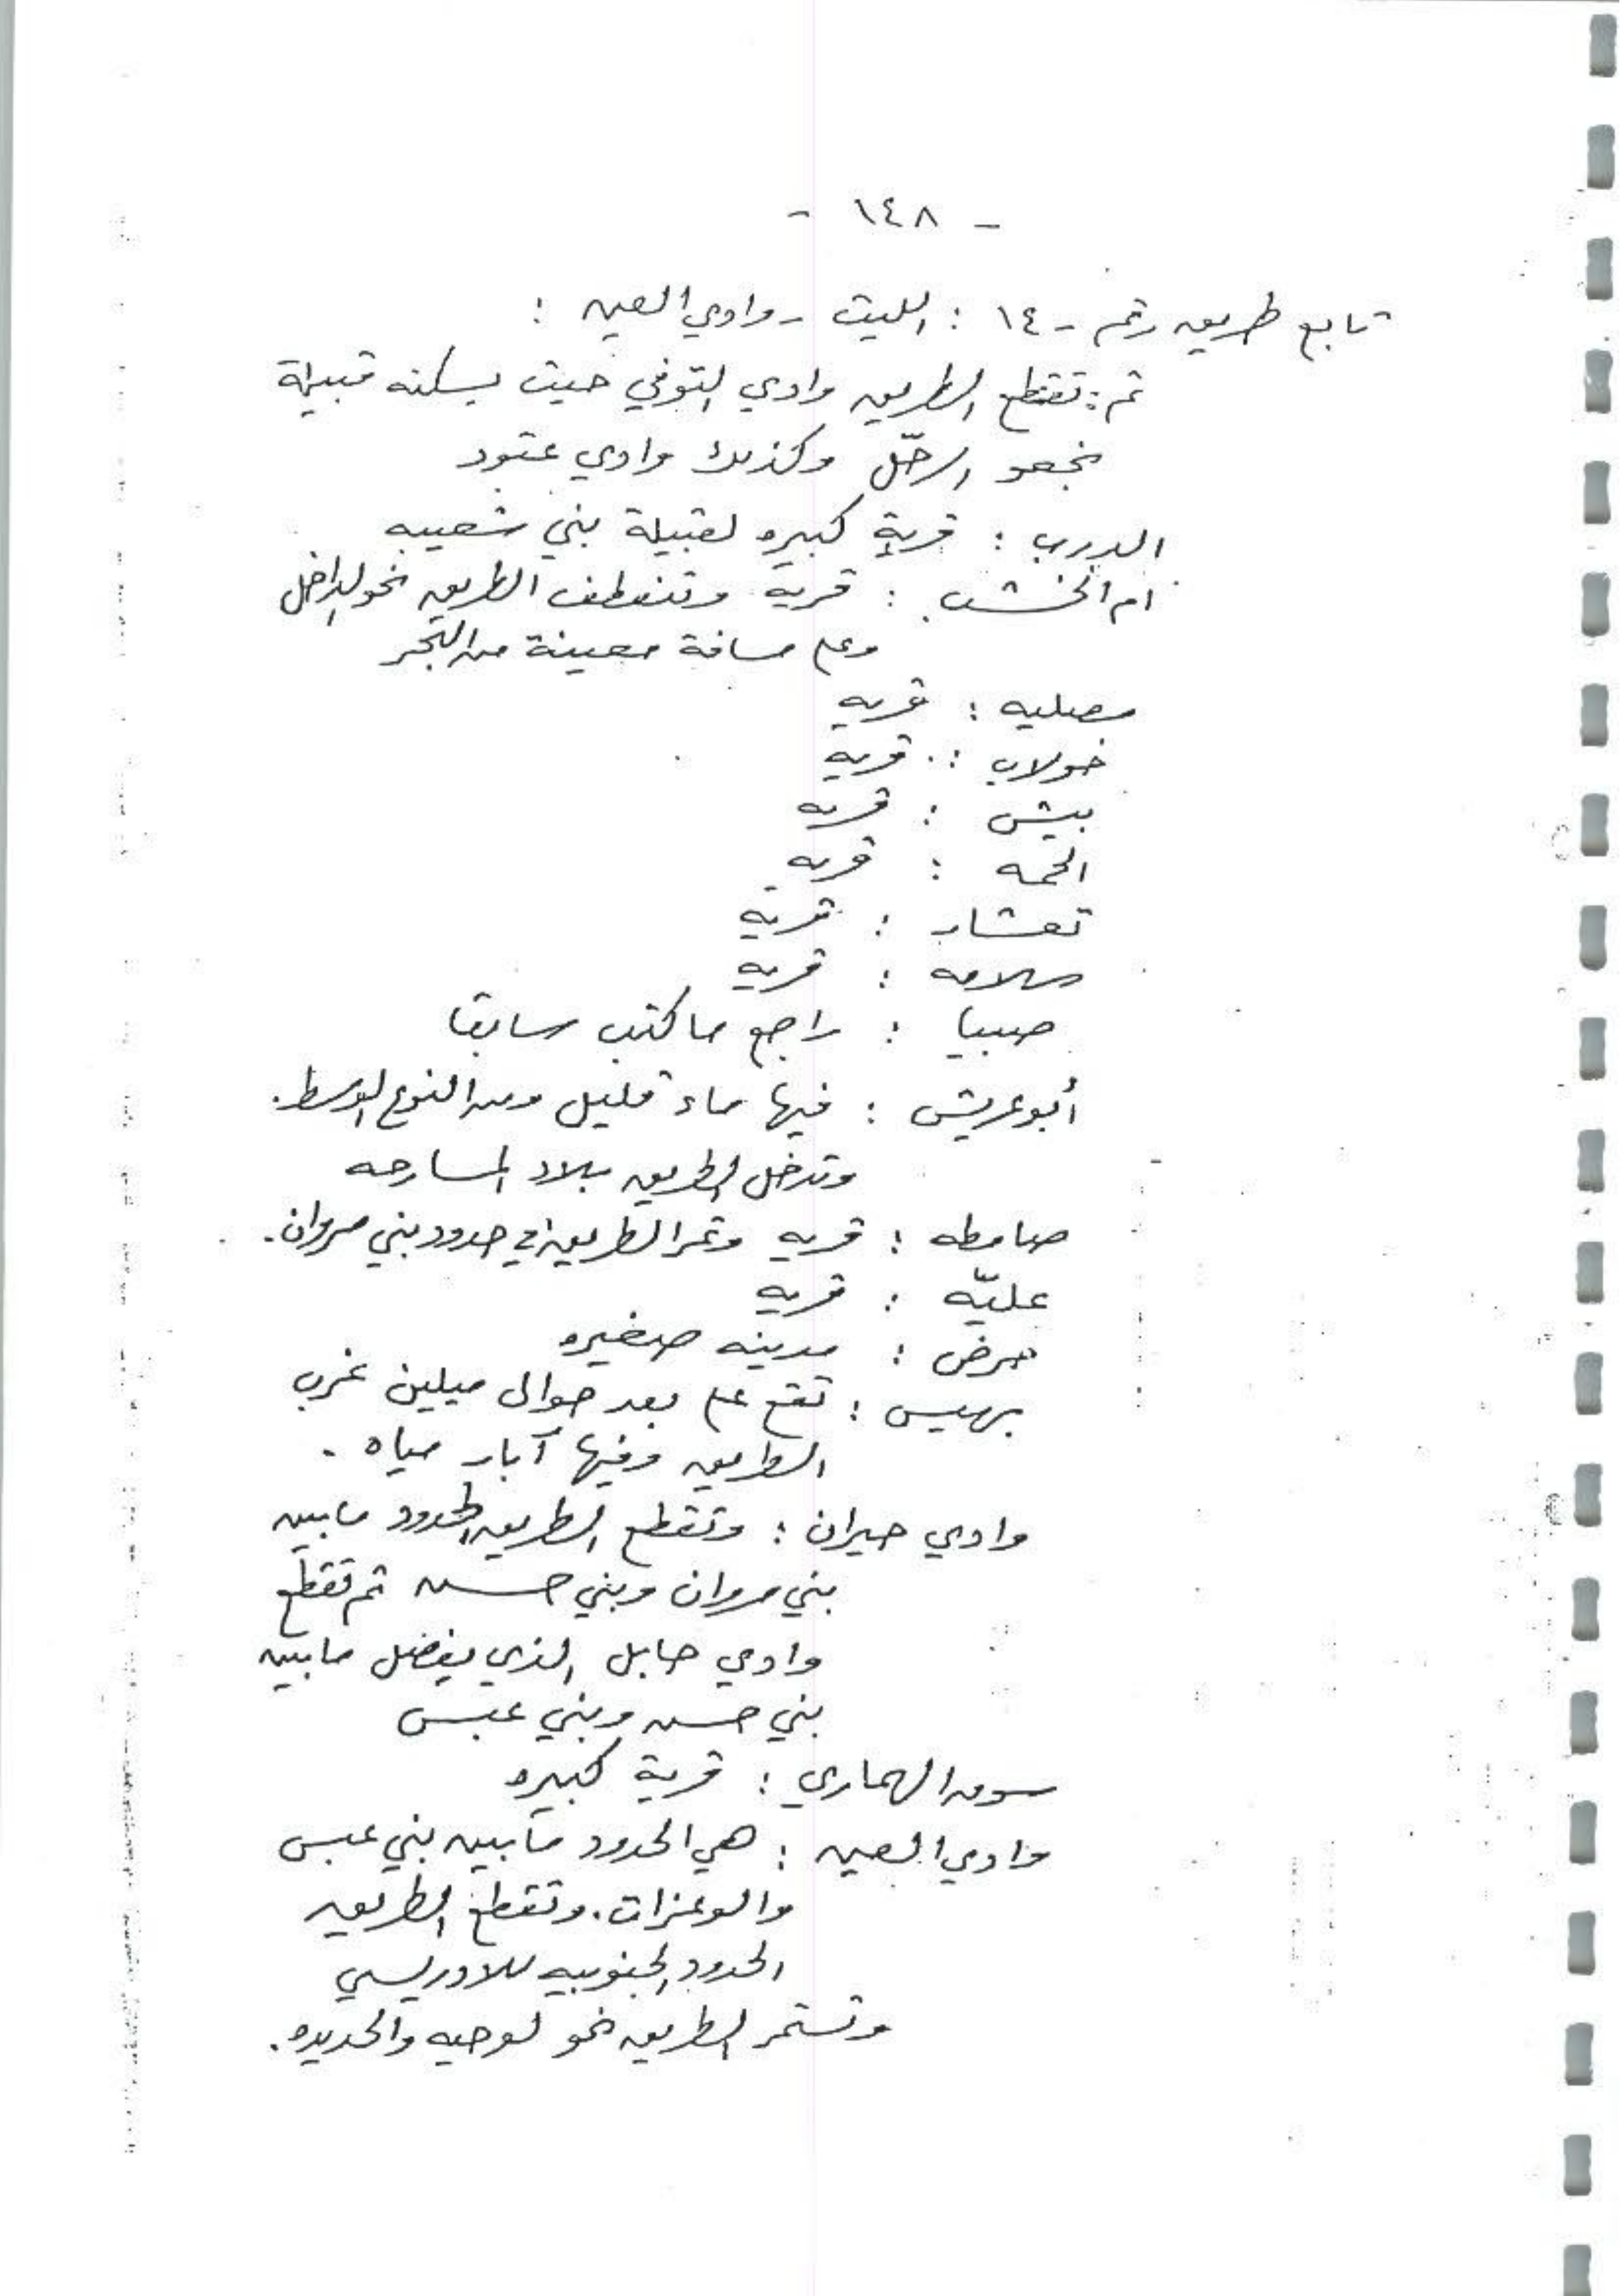 - ١٤٨ -
تابع طريق رقم - ١٤ : الليث - وادي العين :
ثم : تقطع الطريق وادي التوفي حيث يسكنه قبيلة
نجعو الرحّل وكذلك وادي عتود
الدرب : قرية كبيره لقبيلة بني شعيبه
ام الخشب : قريه وتنعطف الطريق نحو الداخل
وعلى مسافة معينة من البحر
مصليه : قريه
خولاب : قريه
بيش : قريه
الحمه : قريه
تعشار : قرية
سلامه : قريه
صبيا : راجع ما كتب سابقا
أبو عريش : فيها ماء قليل ومن النوع الوسط .
وتدخل الطريق بلاد المسارحه
صامطه : قريه وتمر الطريق في حدود بني مروان .
عليّه : قريه
حرض : مدينه صغيره
بهيس : تقع على بعد حوالى ميلين غرب
الطريق وفيها آبار مياه .
وادي حيران : وتقطع الطريق الحدود مابين
بني مروان وبني حسن ثم تقطع
وادي حابل الذي يفصل مابين
بني حسن وبني عبس
سوق الهماري : قرية كبيره
وادي العين : هي الحدود مابين بني عبس
والوعزات . وتقطع الطريق
الحدود الجنوبيه للادريسي
وتستمر الطريق نحو لوحيه والحديده .